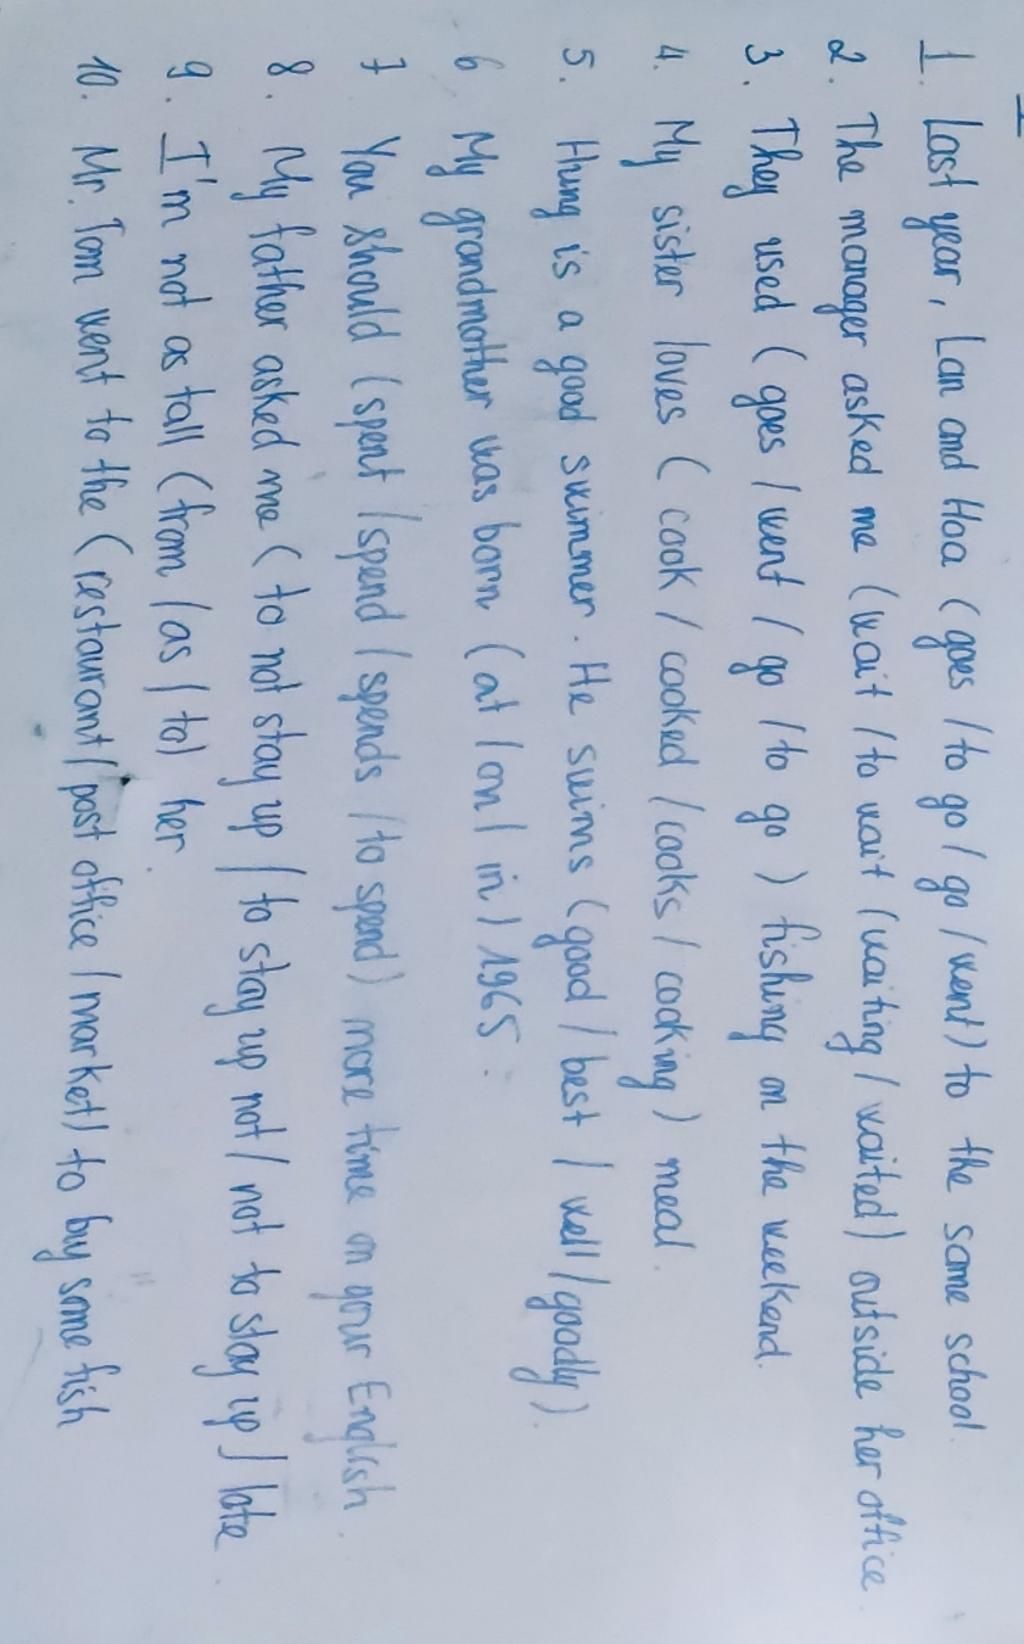 I
1. Last year, Lan and Hoa (goes / to go / go / went) to the same school.
2. The manager asked me (wait / to wait (waiting / waited) outside her office.
3. They used (goes / went / go / to go) fishing on the weekend.
4. My sister loves (cook / cooked / cooks / cooking) meal.
5. Hung is a good swimmer. He swims (good / best / well / goodly).
6 My grandmother was born (at / on / in) 1965.
7 You should (spent / spend / spends / to spend) more time on your English.
8. My father asked me (to not stay up / to stay up not / not to stay up) late
9. I'm not as tall (from / as / to) her.
10. Mr. Tom went to the (restaurant / post office / market) to buy some fish